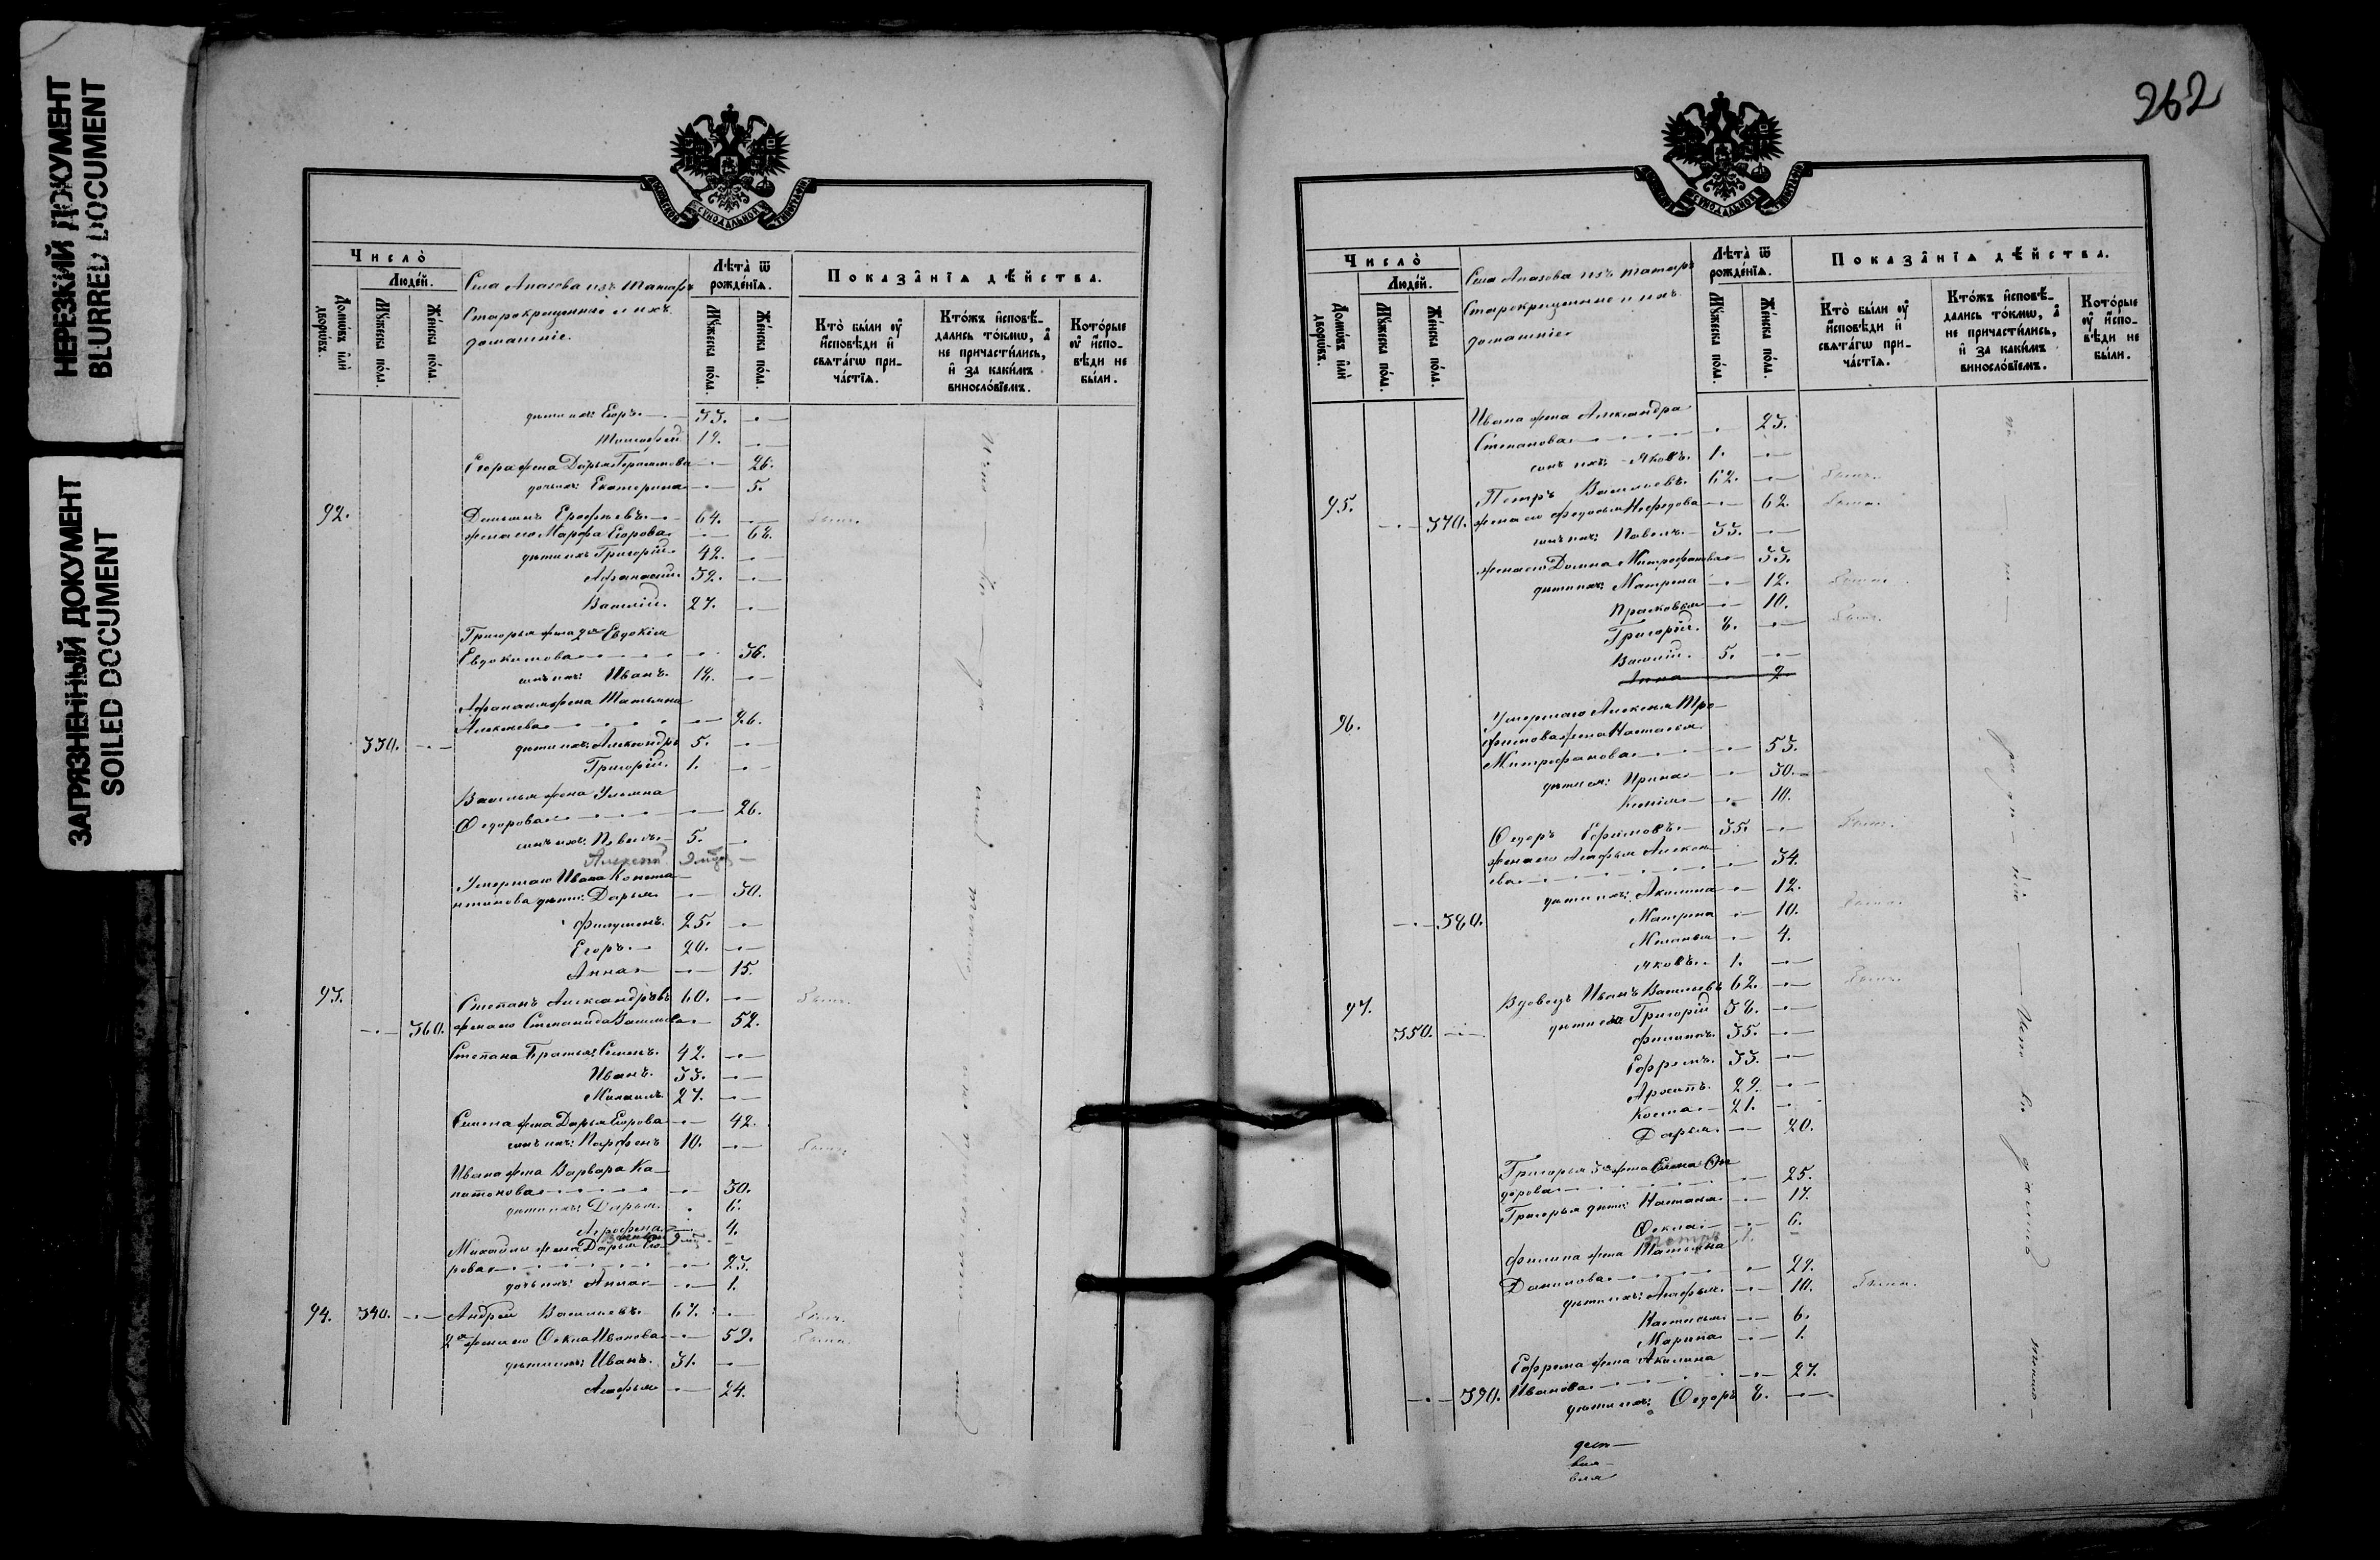 НЕРЕЗКИЙ ДОКУМЕНТ
BLURRED DOCUMENT
ЗАГРЯЗНЕННЫЙ ДОКУМЕНТ
SOILED DOCUMENT
Число̀
Людéй.
Домѡвъ илѝ дворѡвъ.
Мꙋжеска по́ла.
Же́нска по́ла.
Села Апазова изъ татаръ
Старокрещенные и ихъ
домашніе.
Лѣта̀ ѿ рожде́нїѧ.
Мꙋжеска по́ла.
Же́нска по́ла.
Показа̂нїѧ дѣйства.
Кто̀ были ᲂу̓ исповѣди и свѧта́гѡ при-
ча́стїѧ.
Кто́жъ исповѣ-
дались то́кмѡ, а̀ не причасти́лись, и за каки́мъ виносло́вїемъ.
Кото́рые ᲂу̓ испо-
вѣди не были.
дѣти ихъ: Егоръ. 33.
Тимофей 19.
Егора жена Дарья Герасимова 26.
дочь ихъ: Екатерина 5.
92. Ерофѣевъ. 64. былъ.
жена его Марфа Егорова 68.
дѣти ихъ Григорій 42.
Афанасій. 32.
Василій. 27.
Григорья жена 2я Евдокія
Евдокимова 36.
сынъ ихъ: Иванъ. 18.
Афанасья жена Татьяна
Алексѣева 26.
330. дѣти ихъ: Александръ 5.
Григорій. 1.
Василья жена Ульяна
Ѳедорова 26.
сынъ ихъ: Павелъ 5.
Алексѣй 9 мѣс
Умершаго Ивана Конста-
нтинова дѣти: Дарья 30.
Филимонъ. 25.
Егоръ. 20.
Анна 15.
93. Степанъ Александровъ 60. былъ.
360. жена его Степанида Васильева 52.
Степана братья: Семенъ. 42.
Иванъ. 33.
Михаилъ. 27.
Семена жена Дарья Егорова 42.
сынъ ихъ: Парфенъ 10. былъ.
Ивана жена Варвара Ка-
питонова 30.
дѣти ихъ: Дарья. 6.
Агрофена 4.
9 мѣс
Михаила жена Дарья Его-
рова 23.
дочь ихъ: Анна 1.
94. 340. Андрей Васильевъ. 67. былъ.
2я жена его Ѳекла Иванова 59. была.
дѣти ихъ: Иванъ. 31.
Агафья 24.
262
Число̀
Людéй.
Домѡвъ илѝ дворѡвъ.
Мꙋжеска по́ла.
Же́нска по́ла.
Села Апазова изъ татаръ
Старокрещенные и ихъ
домашніе
Лѣта̀ ѿ рожде́нїѧ.
Мꙋжеска по́ла.
Же́нска по́ла.
Показа̂нїѧ дѣйства.
Кто̀ были ᲂу̓ исповѣди и свѧта́гѡ при-
ча́стїѧ.
Кто́жъ исповѣ-
дались то́кмѡ, а̀ не причасти́лись, и за каки́мъ виносло́вїемъ.
Кото́рые ᲂу̓ испо-
вѣди не были.
Ивана жена Александра
Степанова 23.
сынъ ихъ: Яковъ. 1.
95. Петръ Васильевъ. 62. былъ.
370. жена его Федосья Нефедова 62. была.
сынъ ихъ: Павелъ. 33.
жена его Домна Митрофанова 33.
дѣти ихъ: Матрена 12. была.
Прасковья 10.
Григорій. 8. былъ.
Василій. 5.
Анна 2
96. Умершаго Алексѣя Тро-
фимова жена Настасья
Митрофанова 53.
дѣти ея: Ирина 30.
Ксенія 10.
Ѳедоръ Ефимовъ. 35. былъ.
жена его Агафья Алексѣ-
ева 34.
дѣти ихъ: Акилина 12.
380. Матрена 10. была.
Меланья 4.
Яковъ. 1.
97. Вдовецъ Иванъ Васильевъ 62. былъ.
дѣти его: Григорій 38.
350. Филиппъ. 35.
Ефремъ. 33.
Архипъ. 29.
Косма 21.
Дарья 20.
Григорья 3я жена Елена Ѳе-
дорова 25.
Григорья дѣти: Наталья 17.
Ѳекла 6.
Петръ 1.
Филипа жена Татьяна
Данилова 29.
дѣти ихъ: Агафья. 10. была.
Настасья 6.
Марина 1.
Ефрема жена Акилина
390. Иванова 27.
дѣти ихъ: Ѳедоръ 8.